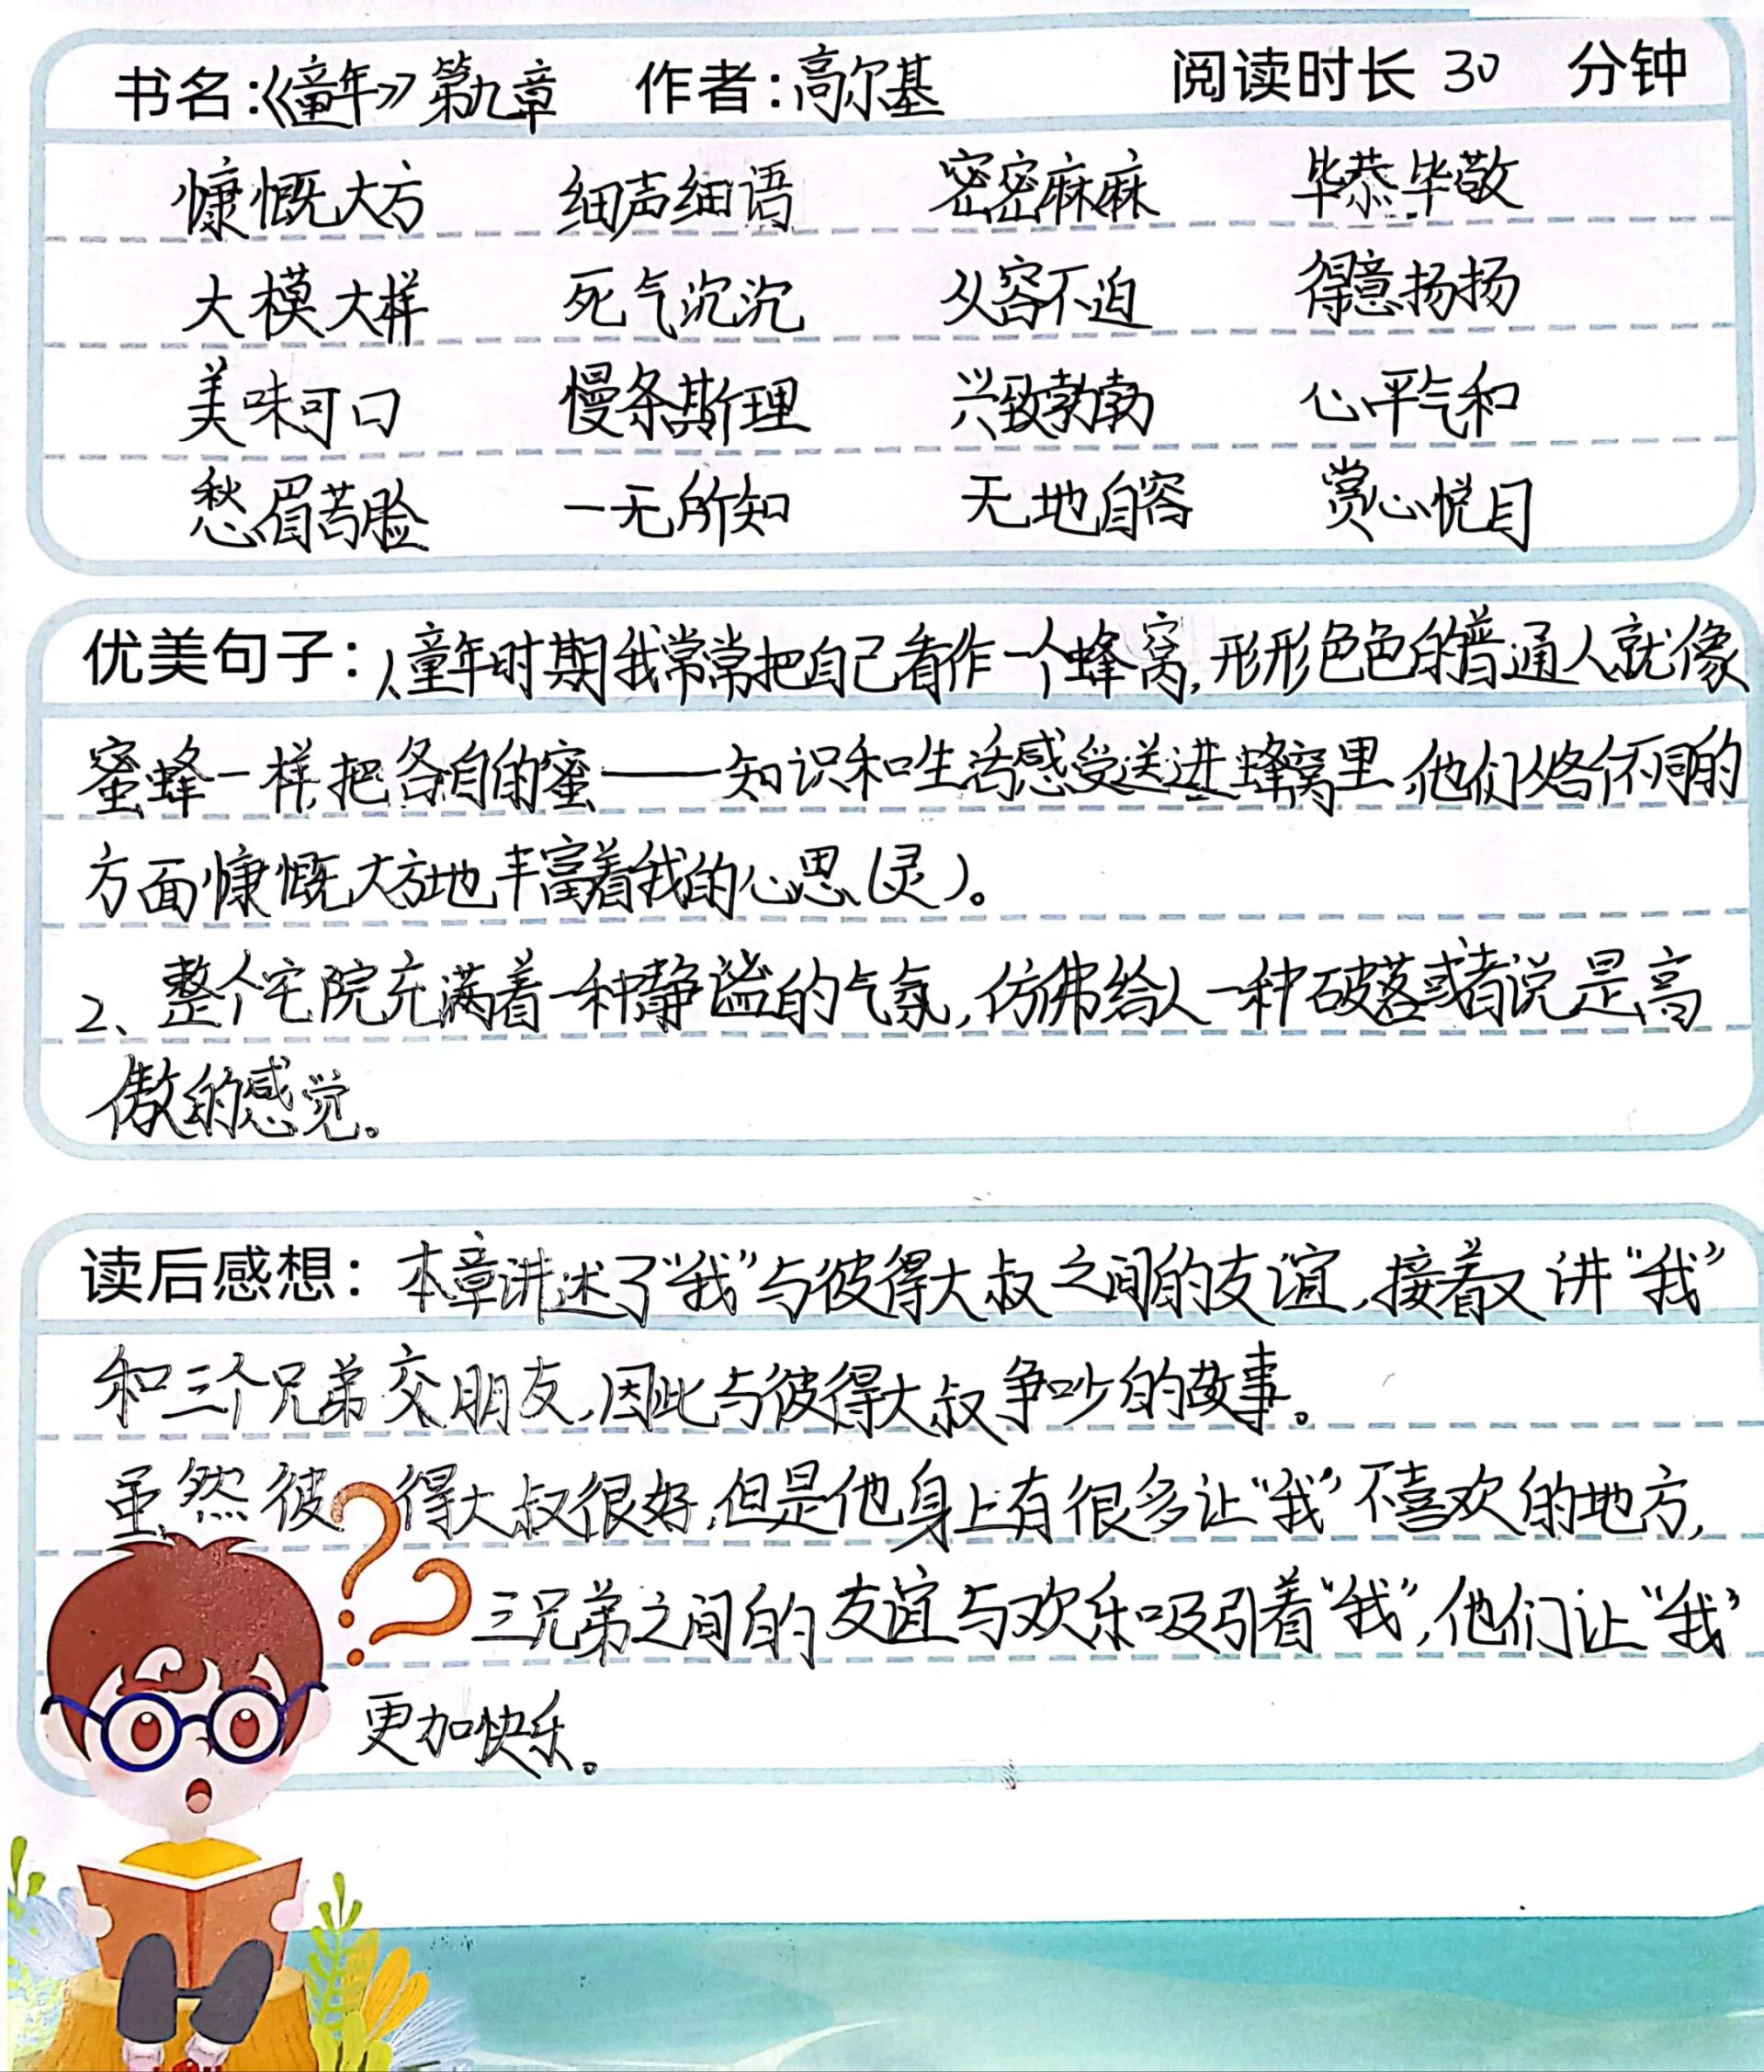 书名:《童年》第九章 作者:高尔基 阅读时长 30 分钟
慷慨大方 细声细语 密密麻麻 毕恭毕敬
大模大样 死气沉沉 从容不迫 得意扬扬
美味可口 慢条斯理 兴致勃勃 心平气和
愁眉苦脸 一无所知 无地自容 赏心悦目
优美句子:1、童年时期我常常把自己看作一个蜂窝,形形色色的普通人就像
蜜蜂一样,把各自的蜜——知识和生活感受送进蜂窝里,他们从各个不同的
方面慷慨大方地丰富着我的心思(灵)。
2、整个宅院充满着一种静谧的气氛,仿佛给人一种破落或者说是高
傲的感觉。
读后感想:本章讲述了“我”与彼得大叔之间的友谊,接着又讲“我”
和三个兄弟交朋友,因此与彼得大叔争吵的故事。
虽然彼得大叔很好,但是他身上有很多让“我”不喜欢的地方,
三兄弟之间的友谊与欢乐吸引着“我”,他们让“我”
更加快乐。